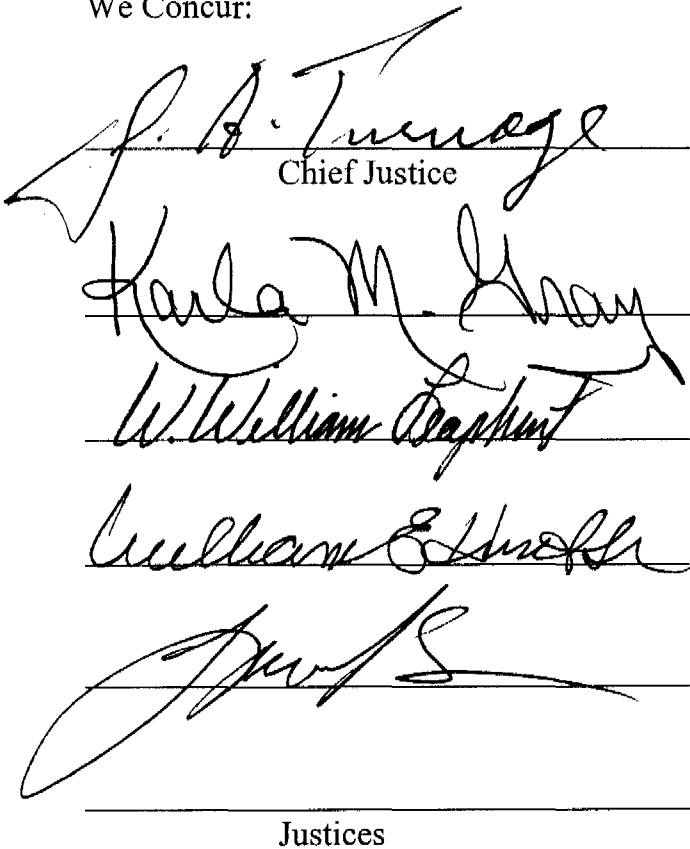 We Concur:
J. A. Turnage
Chief Justice
Karla M. Gray
W. William Leaphart
William E Hunt Sr
Justices